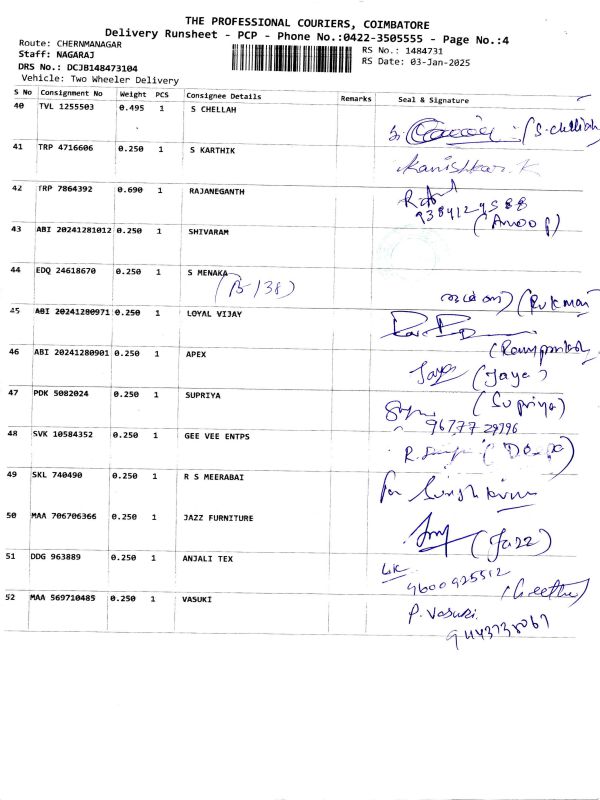 THE PROFESSIONAL COURIERS, COIMBATORE
Delivery Runsheet - PCP - Phone No.:0422-3505555 - Page No.:4
Route: CHERNMANAGAR
Staff: NAGARAJ
DRS No.: DCJB148473104
Vehicle: Two Wheeler Delivery
RS No.: 1484731
RS Date: 03-Jan-2025
S No Consignment No Weight PCS Consignee Details Remarks Seal & Signature
40 TVL 1255503 0.495 1 S CHELLAH (S.chelliah)
41 TRP 4716606 0.250 1 S KARTHIK Kanishkar.K
42 TRP 7864392 0.690 1 RAJANEGANTH
(Anoop)
43 ABI 20241281012 0.250 1 SHIVARAM
44 EDQ 24618670 0.250 1 S MENAKA
(B-138)
45 ABI 20241280971 0.250 1 LOYAL VIJAY
46 ABI 20241280901 0.250 1 APEX
Jaya (Jaya)
47 PDK 5082024 0.250 1 SUPRIYA (Supriya)
96777 29796
48 SVK 10584352 0.250 1 GEE VEE ENTPS
49 SKL 740490 0.250 1 R S MEERABAI
50 MAA 706706366 0.250 1 JAZZ FURNITURE
(Jazz)
51 DDG 963889 0.250 1 ANJALI TEX
9600925512
(Geetha)
52 MAA 569710485 0.250 1 VASUKI P. Vasuki
9443738067